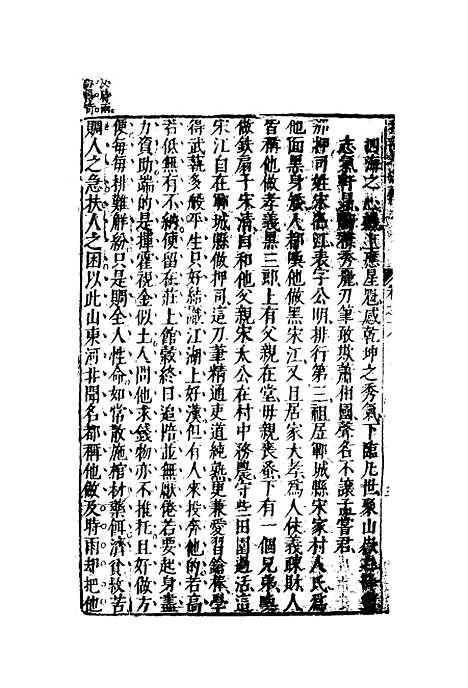 海之心機上應星魁感乾坤之秀氣下臨凡世聚山嶽之降靈
志氣軒昂胸襟秀麗刀筆敢欺蕭相國聲名不讓孟嘗君
那押司姓宋名江表字公明排行第三祖居鄆城縣宋家村人氏爲
他面黑身矮人都喚他做黑宋江又且居家大孝爲人仗義疎財人
皆稱他做孝義黑三郎上有父親在堂母親喪蚤下有一個兄弟喚
做鐵扇子宋清自和他父親宋太公在村中務農守些田園過活這
宋江自在鄆城縣做押司刀筆精通吏道純熟更兼愛習鎗棒學
得武藝多般平生只好結識江湖上好漢但有人來投奔他的若高
若低無有不納便留在莊上館穀終日追陪並無厭倦若要起身盡
力資助端的是揮霍視金似土人問他求錢物亦不推托且好做方
便每每排難解紛只是賙全人性命如常散施棺材藥餌濟貧救苦
賙人之急扶人之困以此山東河北聞名都稱他做及時雨却把他